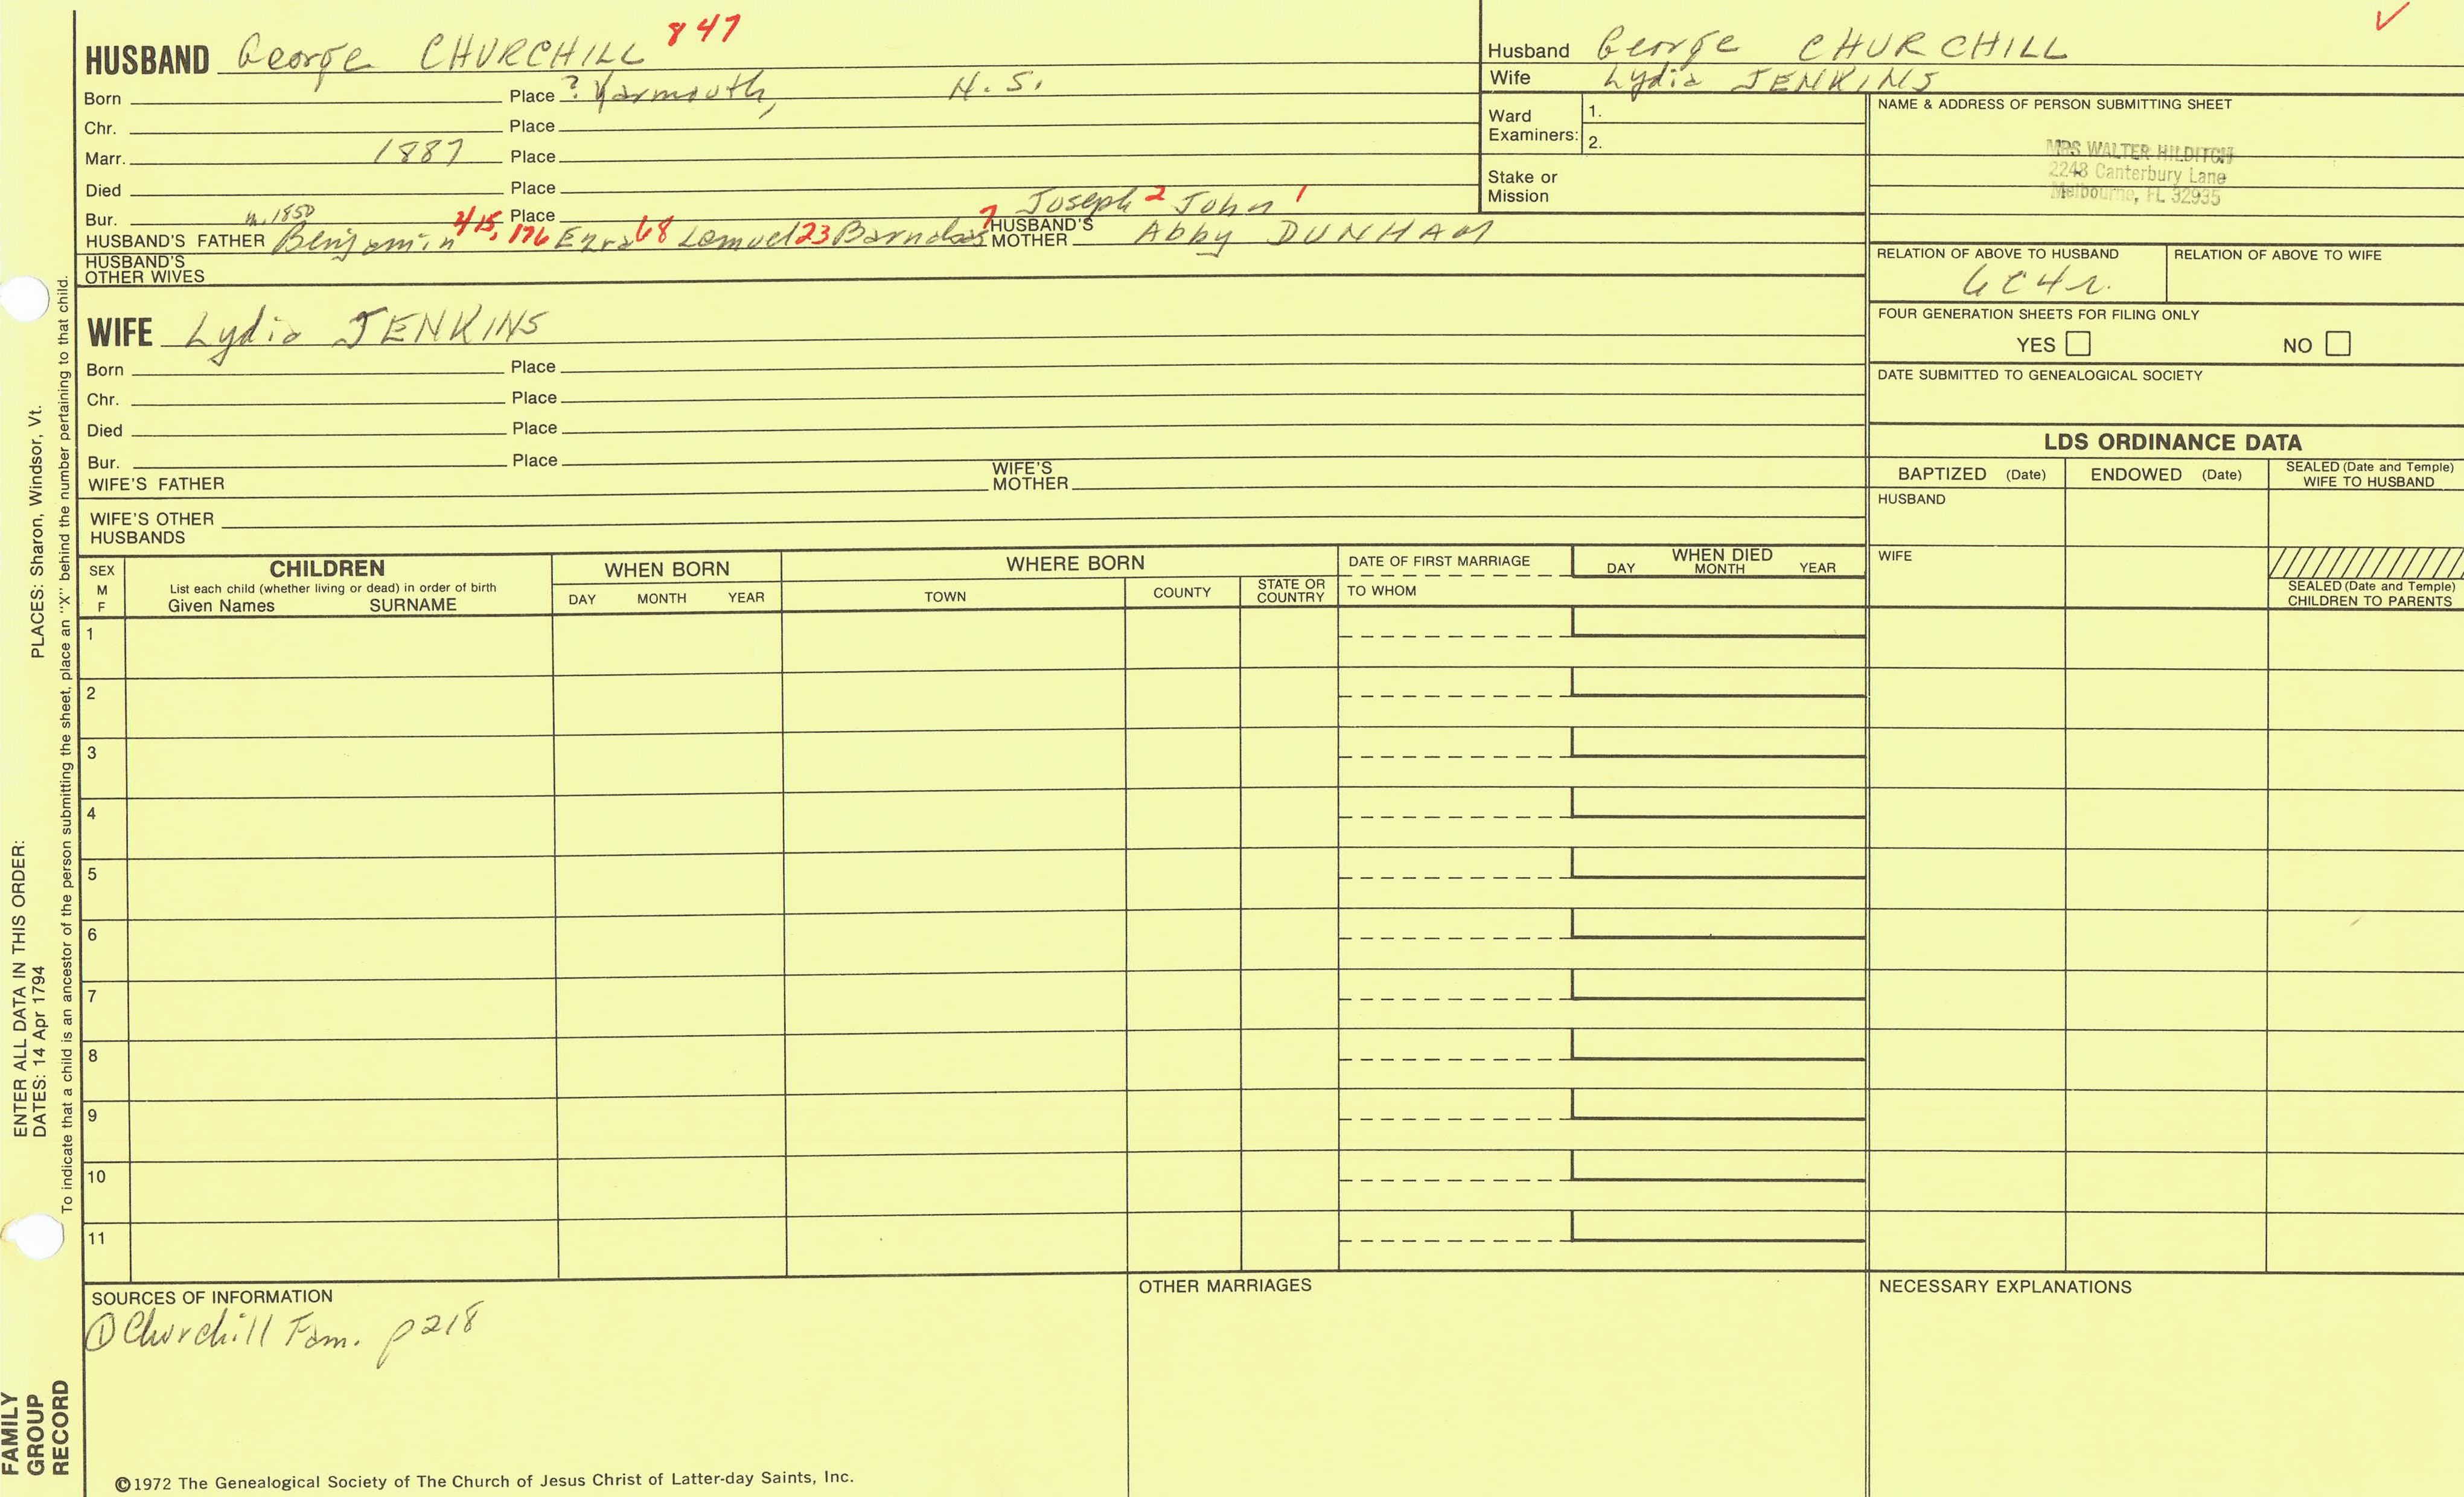 HUSBAND George CHURCHILL 847
Born Place ? Yarmouth, N.S.
Chr. Place
Marr. 1887 Place
Died Place
Bur. Place
m. 1850 Joseph 2 John 1
HUSBAND'S FATHER Benjamin 415, 176 Ezra 68 Lemuel 23 Barnabas 7 HUSBAND'S MOTHER Abby DUNHAM
HUSBAND'S OTHER WIVES
WIFE Lydia JENKINS
Born Place
Chr. Place
Died Place
Bur. Place
WIFE'S FATHER WIFE'S MOTHER
WIFE'S OTHER HUSBANDS
Husband George CHURCHILL
Wife Lydia JENKINS
Ward Examiners: 1.
2.
Stake or Mission
NAME & ADDRESS OF PERSON SUBMITTING SHEET
MRS WALTER HILDITCH
2248 Canterbury Lane
Melbourne, FL 32935
RELATION OF ABOVE TO HUSBAND RELATION OF ABOVE TO WIFE
6C4r.
FOUR GENERATION SHEETS FOR FILING ONLY
YES NO
DATE SUBMITTED TO GENEALOGICAL SOCIETY
LDS ORDINANCE DATA
BAPTIZED (Date) ENDOWED (Date) SEALED (Date and Temple) WIFE TO HUSBAND
HUSBAND
WIFE
SEALED (Date and Temple) CHILDREN TO PARENTS
SEX M F
CHILDREN
List each child (whether living or dead) in order of birth
Given Names SURNAME
WHEN BORN
DAY MONTH YEAR
WHERE BORN
TOWN COUNTY STATE OR COUNTRY
DATE OF FIRST MARRIAGE
TO WHOM
WHEN DIED
DAY MONTH YEAR
1
2
3
4
5
6
7
8
9
10
11
SOURCES OF INFORMATION
① Churchill Fam. p 218
OTHER MARRIAGES
NECESSARY EXPLANATIONS
©1972 The Genealogical Society of The Church of Jesus Christ of Latter-day Saints, Inc.
FAMILY GROUP RECORD
ENTER ALL DATA IN THIS ORDER:
DATES: 14 Apr 1794 PLACES: Sharon, Windsor, Vt.
To indicate that a child is an ancestor of the person submitting the sheet, place an "X" behind the number pertaining to that child.